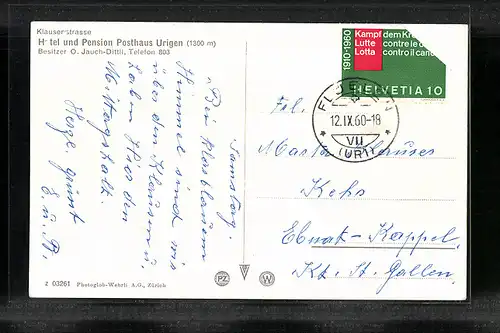 Klausenstrasse
Hotel und Pension Posthaus Urigen (1300 m)
Besitzer O. Jauch-Dittli, Telefon 803
1910-1960
Kampf dem Kr
Lutte contre le c
Lotta contro il canc
HELVETIA 10
FLÜELEN
12.IX.60-18
VII
(URI)
Samstag.
"Bei klarblauem
Himmel sind wir
über den Klausen u.
haben hier den
Mittagshalt.
Herzl. grüsst
E. u. P.
Frl.
Marta Klauser
Kehr
Ebnat-Kappel
Kt. St. Gallen
z 03261 Photoglob-Wehrli A.G., Zürich
PZ
W